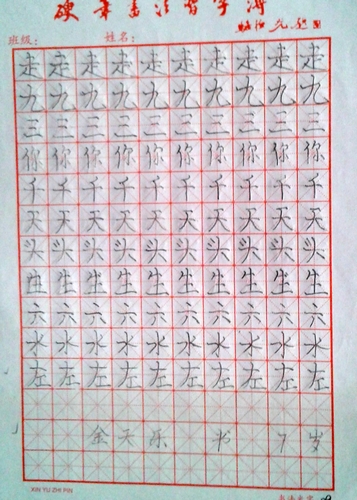 硬笔书法习字簿
班级： 姓名：
走走走走走走走走走走
九九九九九九九九九九
三三三三三三三三三三
你你你你你你你你你你
千千千千千千千千千千
天天天天天天天天天天
头头头头头头头头头头
生生生生生生生生生生
六六六六六六六六六六
水水水水水水水水水水
左左左左左左左左左左
金天乐 书 7岁
XIN YU ZHI PIN